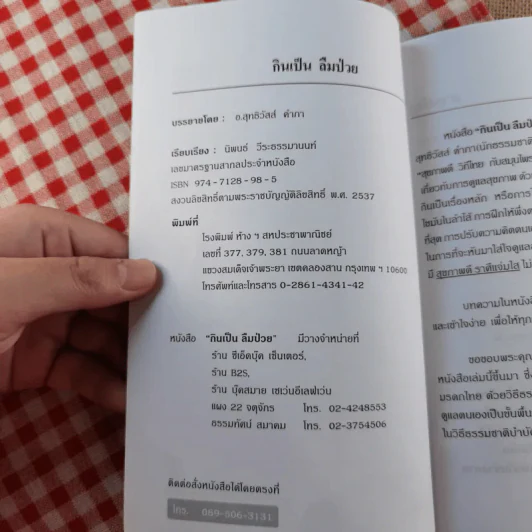 กินเป็น ลืมป่วย
บรรยายโดย : อ.สุทธิวัสส์ คำภา
เรียบเรียง : นิพนธ์ วีระธรรมานนท์
เลขมาตรฐานสากลประจำหนังสือ
ISBN 974-7128-98-5
สงวนลิขสิทธิ์ตามพระราชบัญญัติลิขสิทธิ์ พ.ศ. 2537
พิมพ์ที่
โรงพิมพ์ ห้าง ฯ สหประชาพาณิชย์
เลขที่ 377, 379, 381 ถนนลาดหญ้า
แขวงสมเด็จเจ้าพระยา เขตคลองสาน กรุงเทพ ฯ 10600
โทรศัพท์และโทรสาร 0-2861-4341-42
หนังสือ "กินเป็น ลืมป่วย" มีวางจำหน่ายที่
ร้าน ซีเอ็ดบุ๊ค เซ็นเตอร์,
ร้าน B2S,
ร้าน บุ๊คสมาย เซเว่นอีเลฟเว่น
แผง 22 จตุจักร โทร. 02-4248553
ธรรมทัศน์ สมาคม โทร. 02-3754506
ติดต่อสั่งหนังสือได้โดยตรงที่
โทร. 089-806-3131
หนังสือ "กินเป็น ลืมป่
สุทธิวัสส์ คำภา(นักธรรมชาติ
"สุขภาพดี วิถีไทย กับสมุนไพ
เกี่ยวกับการดูแลสุขภาพ ด้ว
กินเป็นเรื่องหลัก หรือการ
ไขมันในลำไส้ การฝึกให้พึ่งต
ที่สุด การปรับความคิดตนเ
ในการที่จะหันมาใส่ใจดูแล
มี สุขภาพดี ราศีแจ่มใส ไม่
บทความในหนังสื
และเข้าใจง่าย เพื่อให้ทุก
ขอขอบพระคุณ
หนังสือเล่มนี้ขึ้นมา ซึ่
มรดกไทย ด้วยวิธีธร
ดูแลตนเองเป็นขั้นพื้น
ในวิธีธรรมชาติบำบั